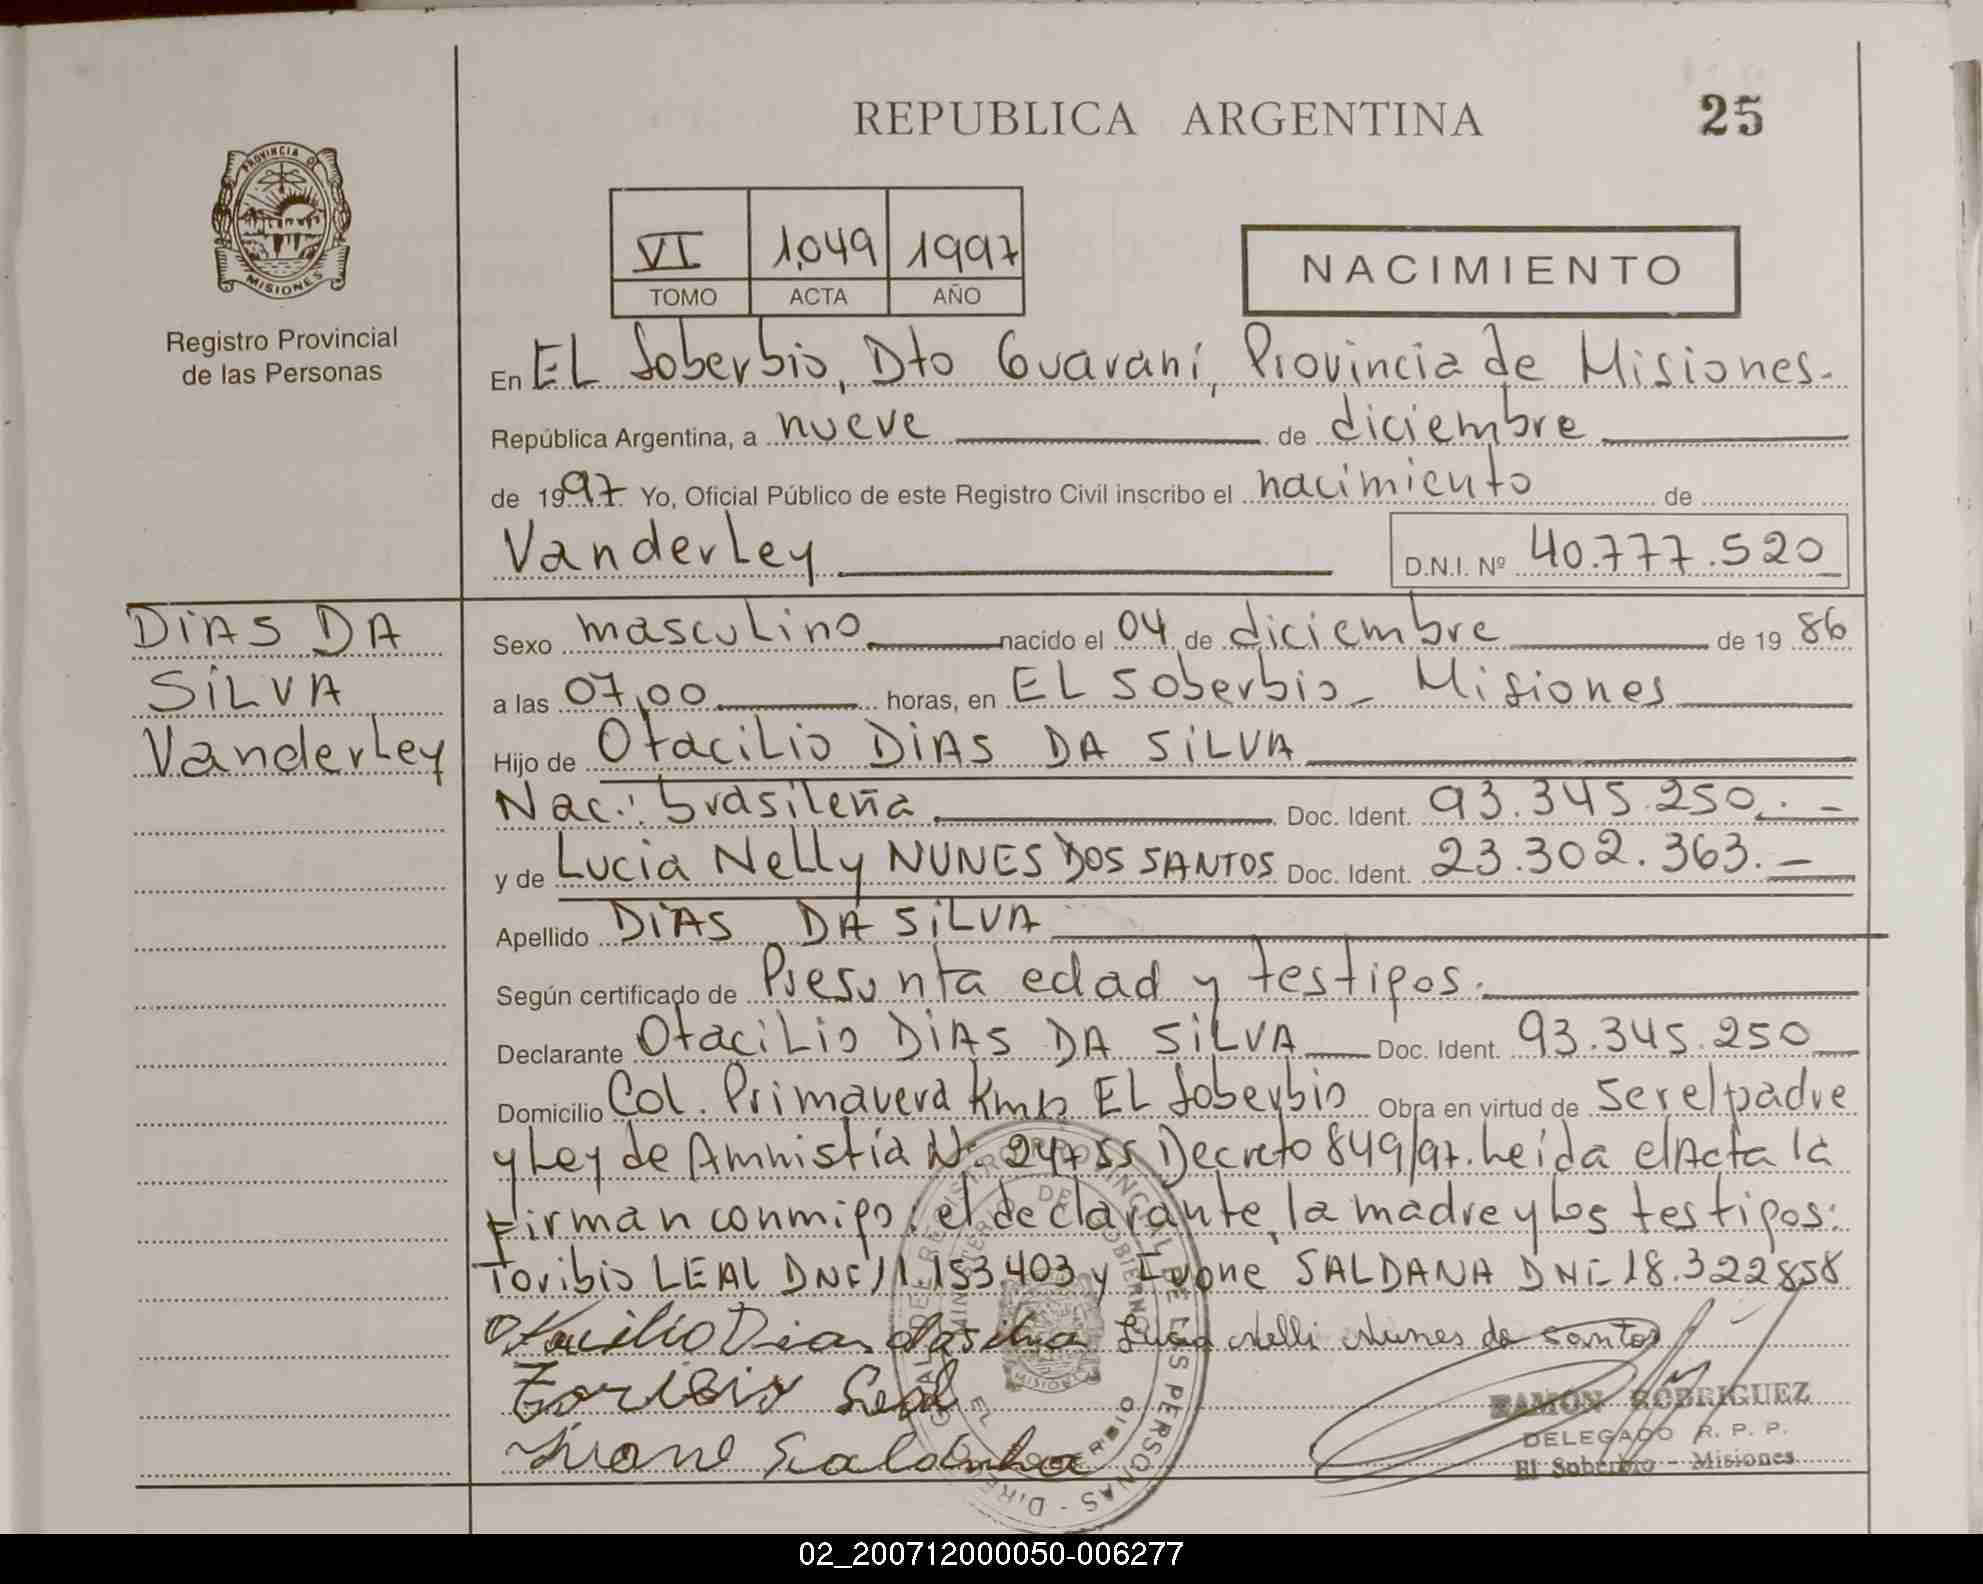 REPUBLICA ARGENTINA
25
PROVINCIA DE
MISIONES
Registro Provincial
de las Personas
VI 1.049 1997
TOMO ACTA AÑO
NACIMIENTO
En EL Soberbio, Dto Guaraní, Provincia de Misiones.
República Argentina, a nueve de diciembre
de 1997 Yo, Oficial Público de este Registro Civil inscribo el nacimiento de
Vanderley D.N.I. Nº 40.777.520
DIAS DA
SILVA
Vanderley
Sexo masculino nacido el 04 de diciembre de 19 86
a las 07,00 horas, en EL Soberbio - Misiones
Hijo de Otacilio DIAS DA SILVA
Nac.: brasileña Doc. Ident. 93.345.250.-
y de Lucia Nelly NUNES DOS SANTOS Doc. Ident. 23.302.363.-
Apellido DIAS DA SILVA
Según certificado de Presunta edad y testigos.
Declarante Otacilio DIAS DA SILVA Doc. Ident. 93.345.250
Domicilio Col. Primavera EL Soberbio Obra en virtud de ser el padre
y Ley de Amnistía Nº 24755 Decreto 849/97. Leída el Acta la
firman conmigo, el declarante, la madre y los testigos:
Toribio LEAL DNI 11.153403 y Ivone SALDANA DNI 18.322858
Otacilio Dias da silva Lucia Nelli Nunes do santos
Toribio Leal
Ivone Saldanha
RAMON RODRIGUEZ
DELEGADO R. P. P.
El Soberbio - Misiones
02_200712000050-006277